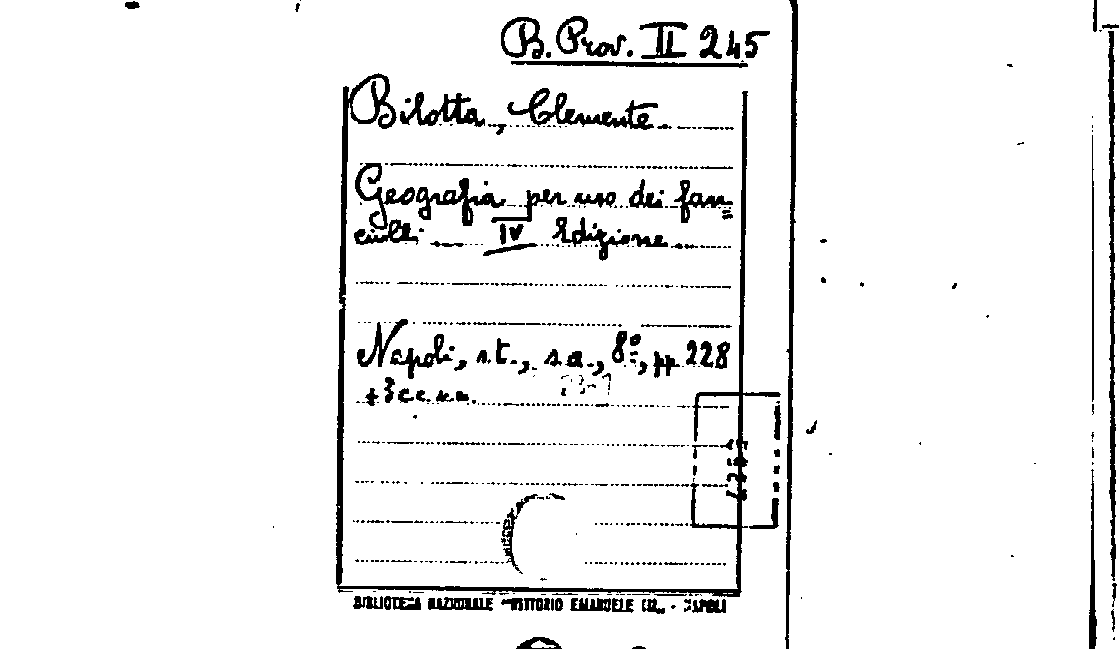 B. Prov. II 245
Bilotta, Clemente.
Geografia per uso dei fan=
ciulli IV Edizione
Napoli, s.t., s.a., 8º, pp. 228
+ 3 cc. nn.
BIBLIOTECA NAZIONALE VITTORIO EMANUELE III - NAPOLI